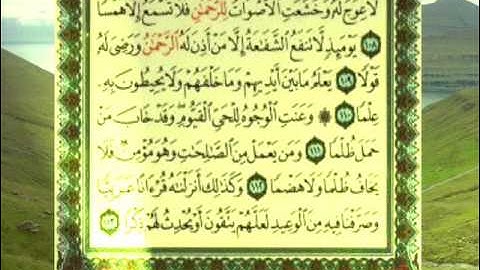 لَا عِوَجَ لَهُۥ وَخَشَعَتِ ٱلْأَصْوَاتُ لِلرَّحْمَٰنِ فَلَا تَسْمَعُ إِلَّا هَمْسًا
١٠٨ يَوْمَئِذٍ لَّا تَنفَعُ ٱلشَّفَٰعَةُ إِلَّا مَنْ أَذِنَ لَهُ ٱلرَّحْمَٰنُ وَرَضِىَ لَهُۥ
قَوْلًا ١٠٩ يَعْلَمُ مَا بَيْنَ أَيْدِيهِمْ وَمَا خَلْفَهُمْ وَلَا يُحِيطُونَ بِهِۦ
عِلْمًا ١١٠ ۞ وَعَنَتِ ٱلْوُجُوهُ لِلْحَىِّ ٱلْقَيُّومِ وَقَدْ خَابَ مَنْ
حَمَلَ ظُلْمًا ١١١ وَمَن يَعْمَلْ مِنَ ٱلصَّٰلِحَٰتِ وَهُوَ مُؤْمِنٌ فَلَا
يَخَافُ ظُلْمًا وَلَا هَضْمًا ١١٢ وَكَذَٰلِكَ أَنزَلْنَٰهُ قُرْءَانًا عَرَبِيًّا
وَصَرَّفْنَا فِيهِ مِنَ ٱلْوَعِيدِ لَعَلَّهُمْ يَتَّقُونَ أَوْ يُحْدِثُ لَهُمْ ذِكْرًا ١١٣